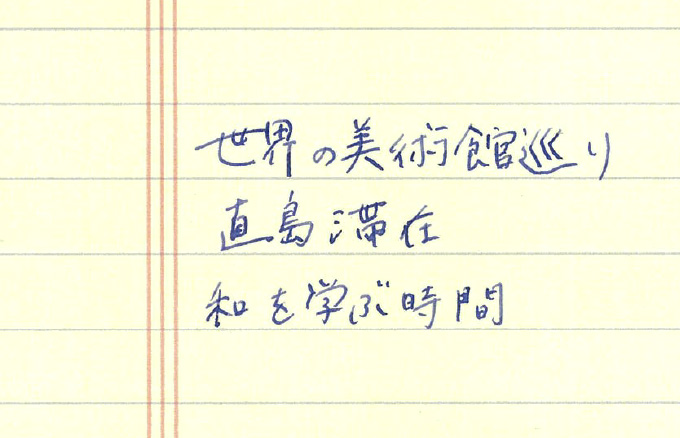 世界の美術館巡り
直島滞在
和を学ぶ時間